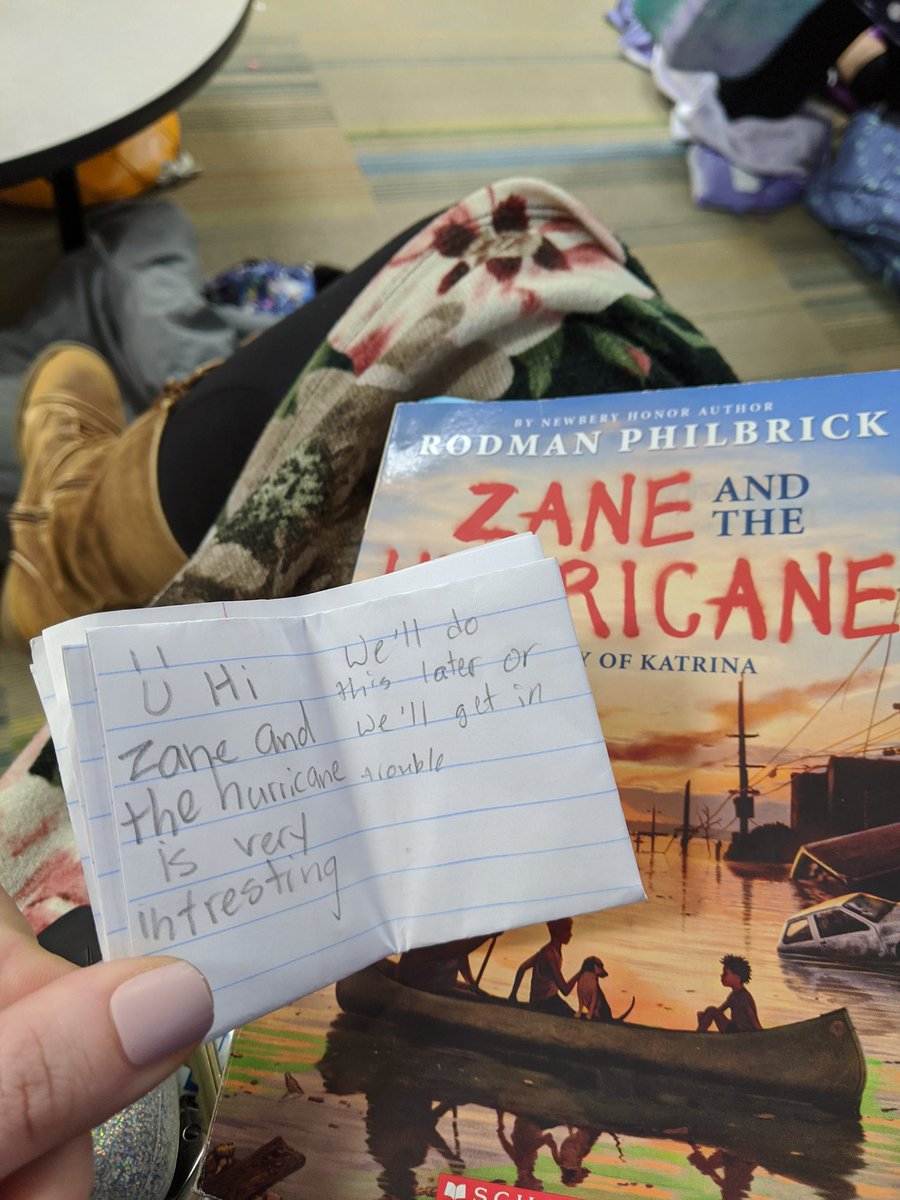 BY NEWBERY HONOR AUTHOR
RODMAN PHILBRICK
ZANE AND
THE
RICANE
Y OF KATRINA
Ü Hi
Zane and
the hurricane
is very
intresting
We'll do
this later or
we'll get in
trouble